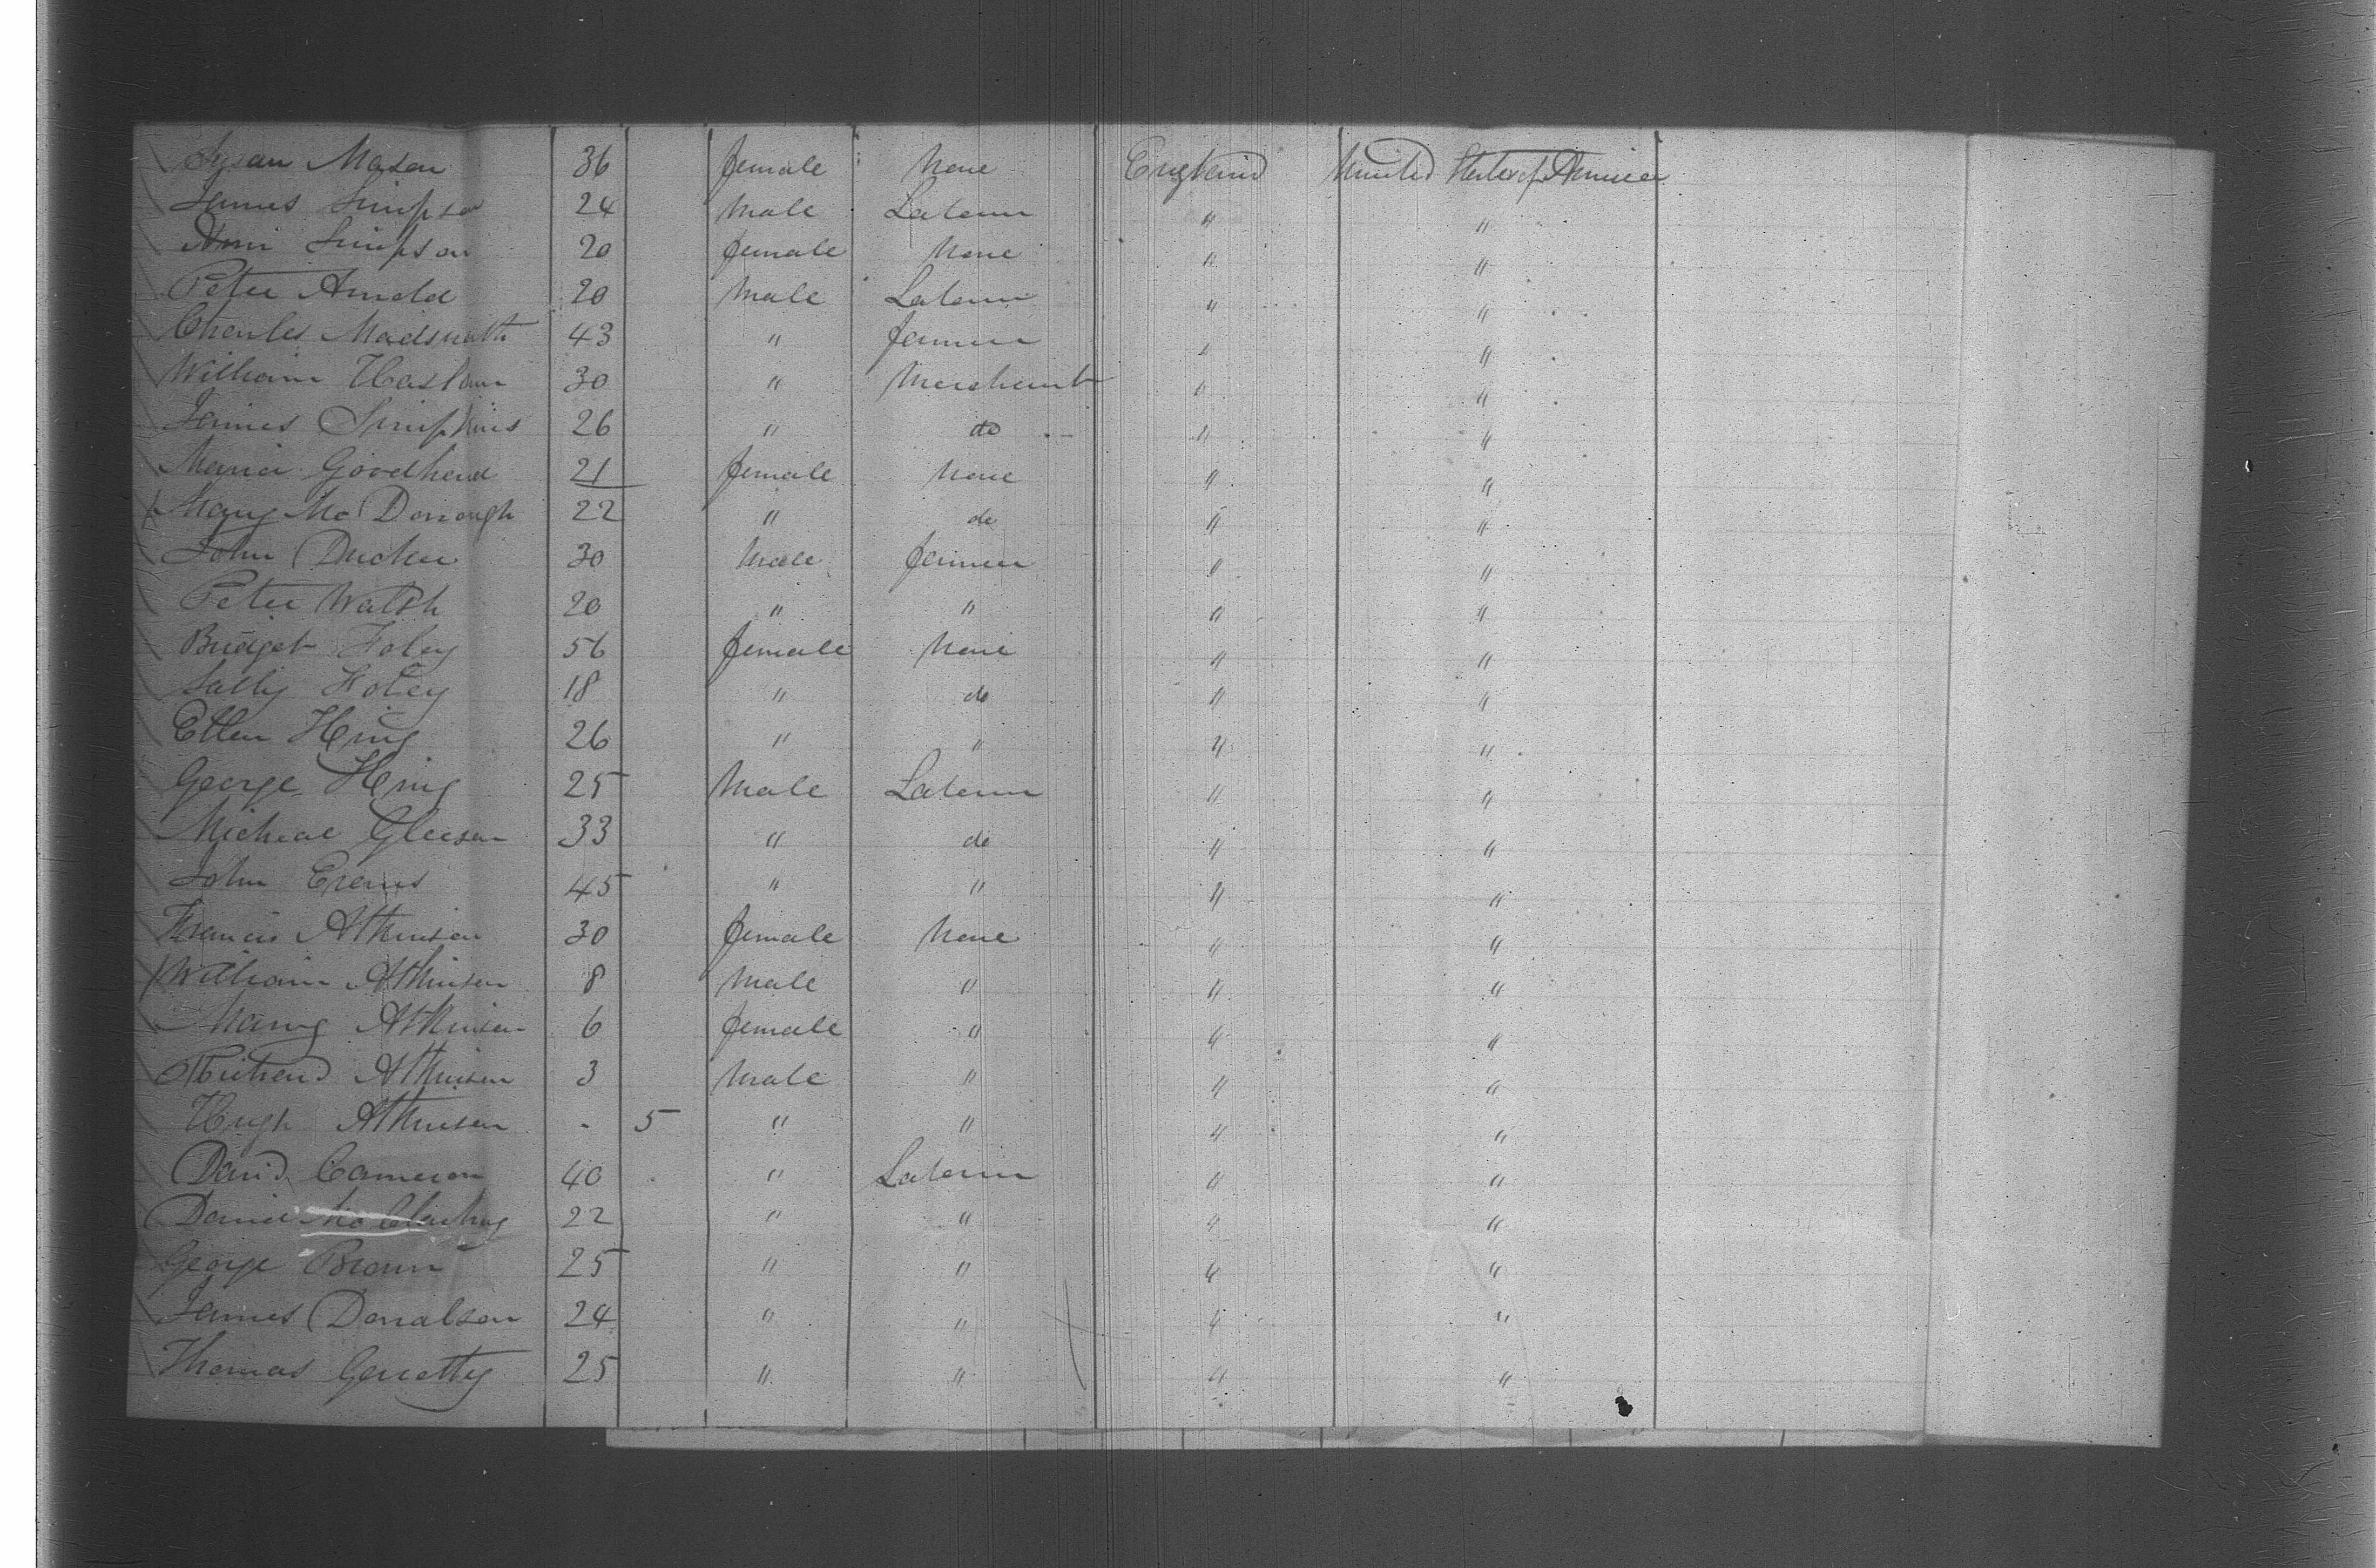 Susan Mason 36 female None England United States of America
James Simpson 24 Male Laborer " "
Ann Simpson 20 female None " "
Peter Arnold 20 Male Laborer " "
Charles 43 " farmer " "
William Haslam 30 " Merchant " "
James Simpkins 26 " do " "
Maria Goodhead 21 female None " "
Mary Mc Donough 22 " do " "
John Ducker 30 Male farmer " "
Peter Walsh 20 " " " "
Bridget Foley 56 female None " "
Sally Foley 18 " do " "
Ellen King 26 " " " "
George King 25 Male Laborer " "
Micheal Gleeson 33 " do " "
John Evans 45 " " " "
Francis Atkinson 30 female None " "
William Atkinson 8 Male " " "
Mary Atkinson 6 female " " "
Richard Atkinson 3 Male " " "
Hugh Atkinson - 5 " " " "
David Cameron 40 " Laborer " "
Daniel 22 " " " "
George Brown 25 " " " "
James Donalson 24 " " " "
Thomas Gerretty 25 " " " "